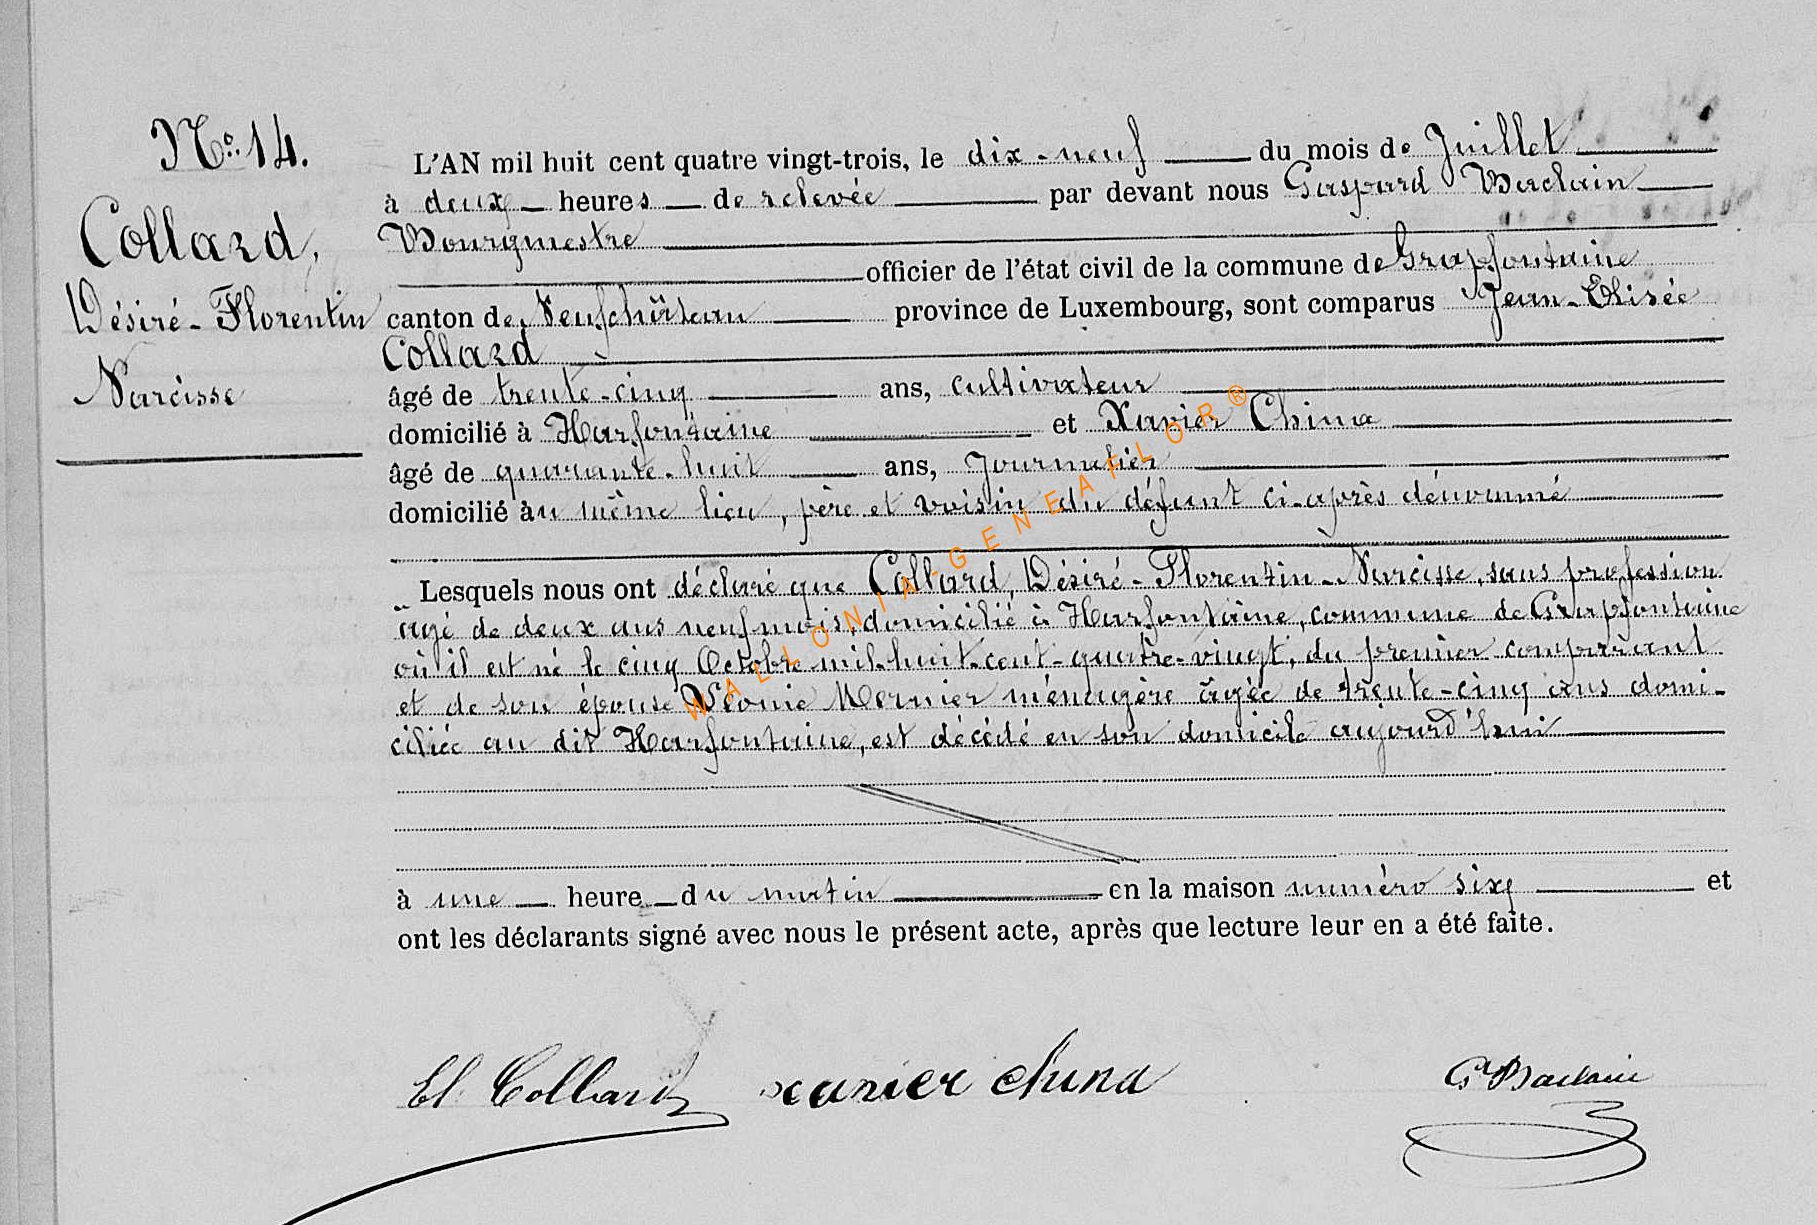 No. 14.
Collard,
Désiré-Florentin
Narcisse
L'AN mil huit cent quatre vingt-trois, le dix-neuf du mois de Juillet
à deux heures de relevée par devant nous Gaspard Baclain
Bourgmestre
officier de l'état civil de la commune de Grapfontaine
canton de Neufchâteau province de Luxembourg, sont comparus Jean-Elisée
Collard
âgé de trente-cinq ans, cultivateur
domicilié à Harfontaine et Xavier China
âgé de quarante-huit ans, Journalier
domicilié au même lieu, père et voisin du défunt ci-après dénommé
Lesquels nous ont déclaré que Collard, Désiré-Florentin-Narcisse, sans profession
âgé de deux ans neuf mois, domicilié à Harfontaine, commune de Grapfontaine
où il est né le cinq Octobre mil-huit-cent-quatre-vingt, du premier comparant
et de son épouse Léonie Mernier ménagère âgée de trente-cinq ans domi-
ciliée au dit Harfontaine, est décédé en son domicile aujourd'hui
à une heure du matin en la maison numéro six et
ont les déclarants signé avec nous le présent acte, après que lecture leur en a été faite.
El. Collard xavier china G. Baclain
WALLONIA-GENEAFLOR®